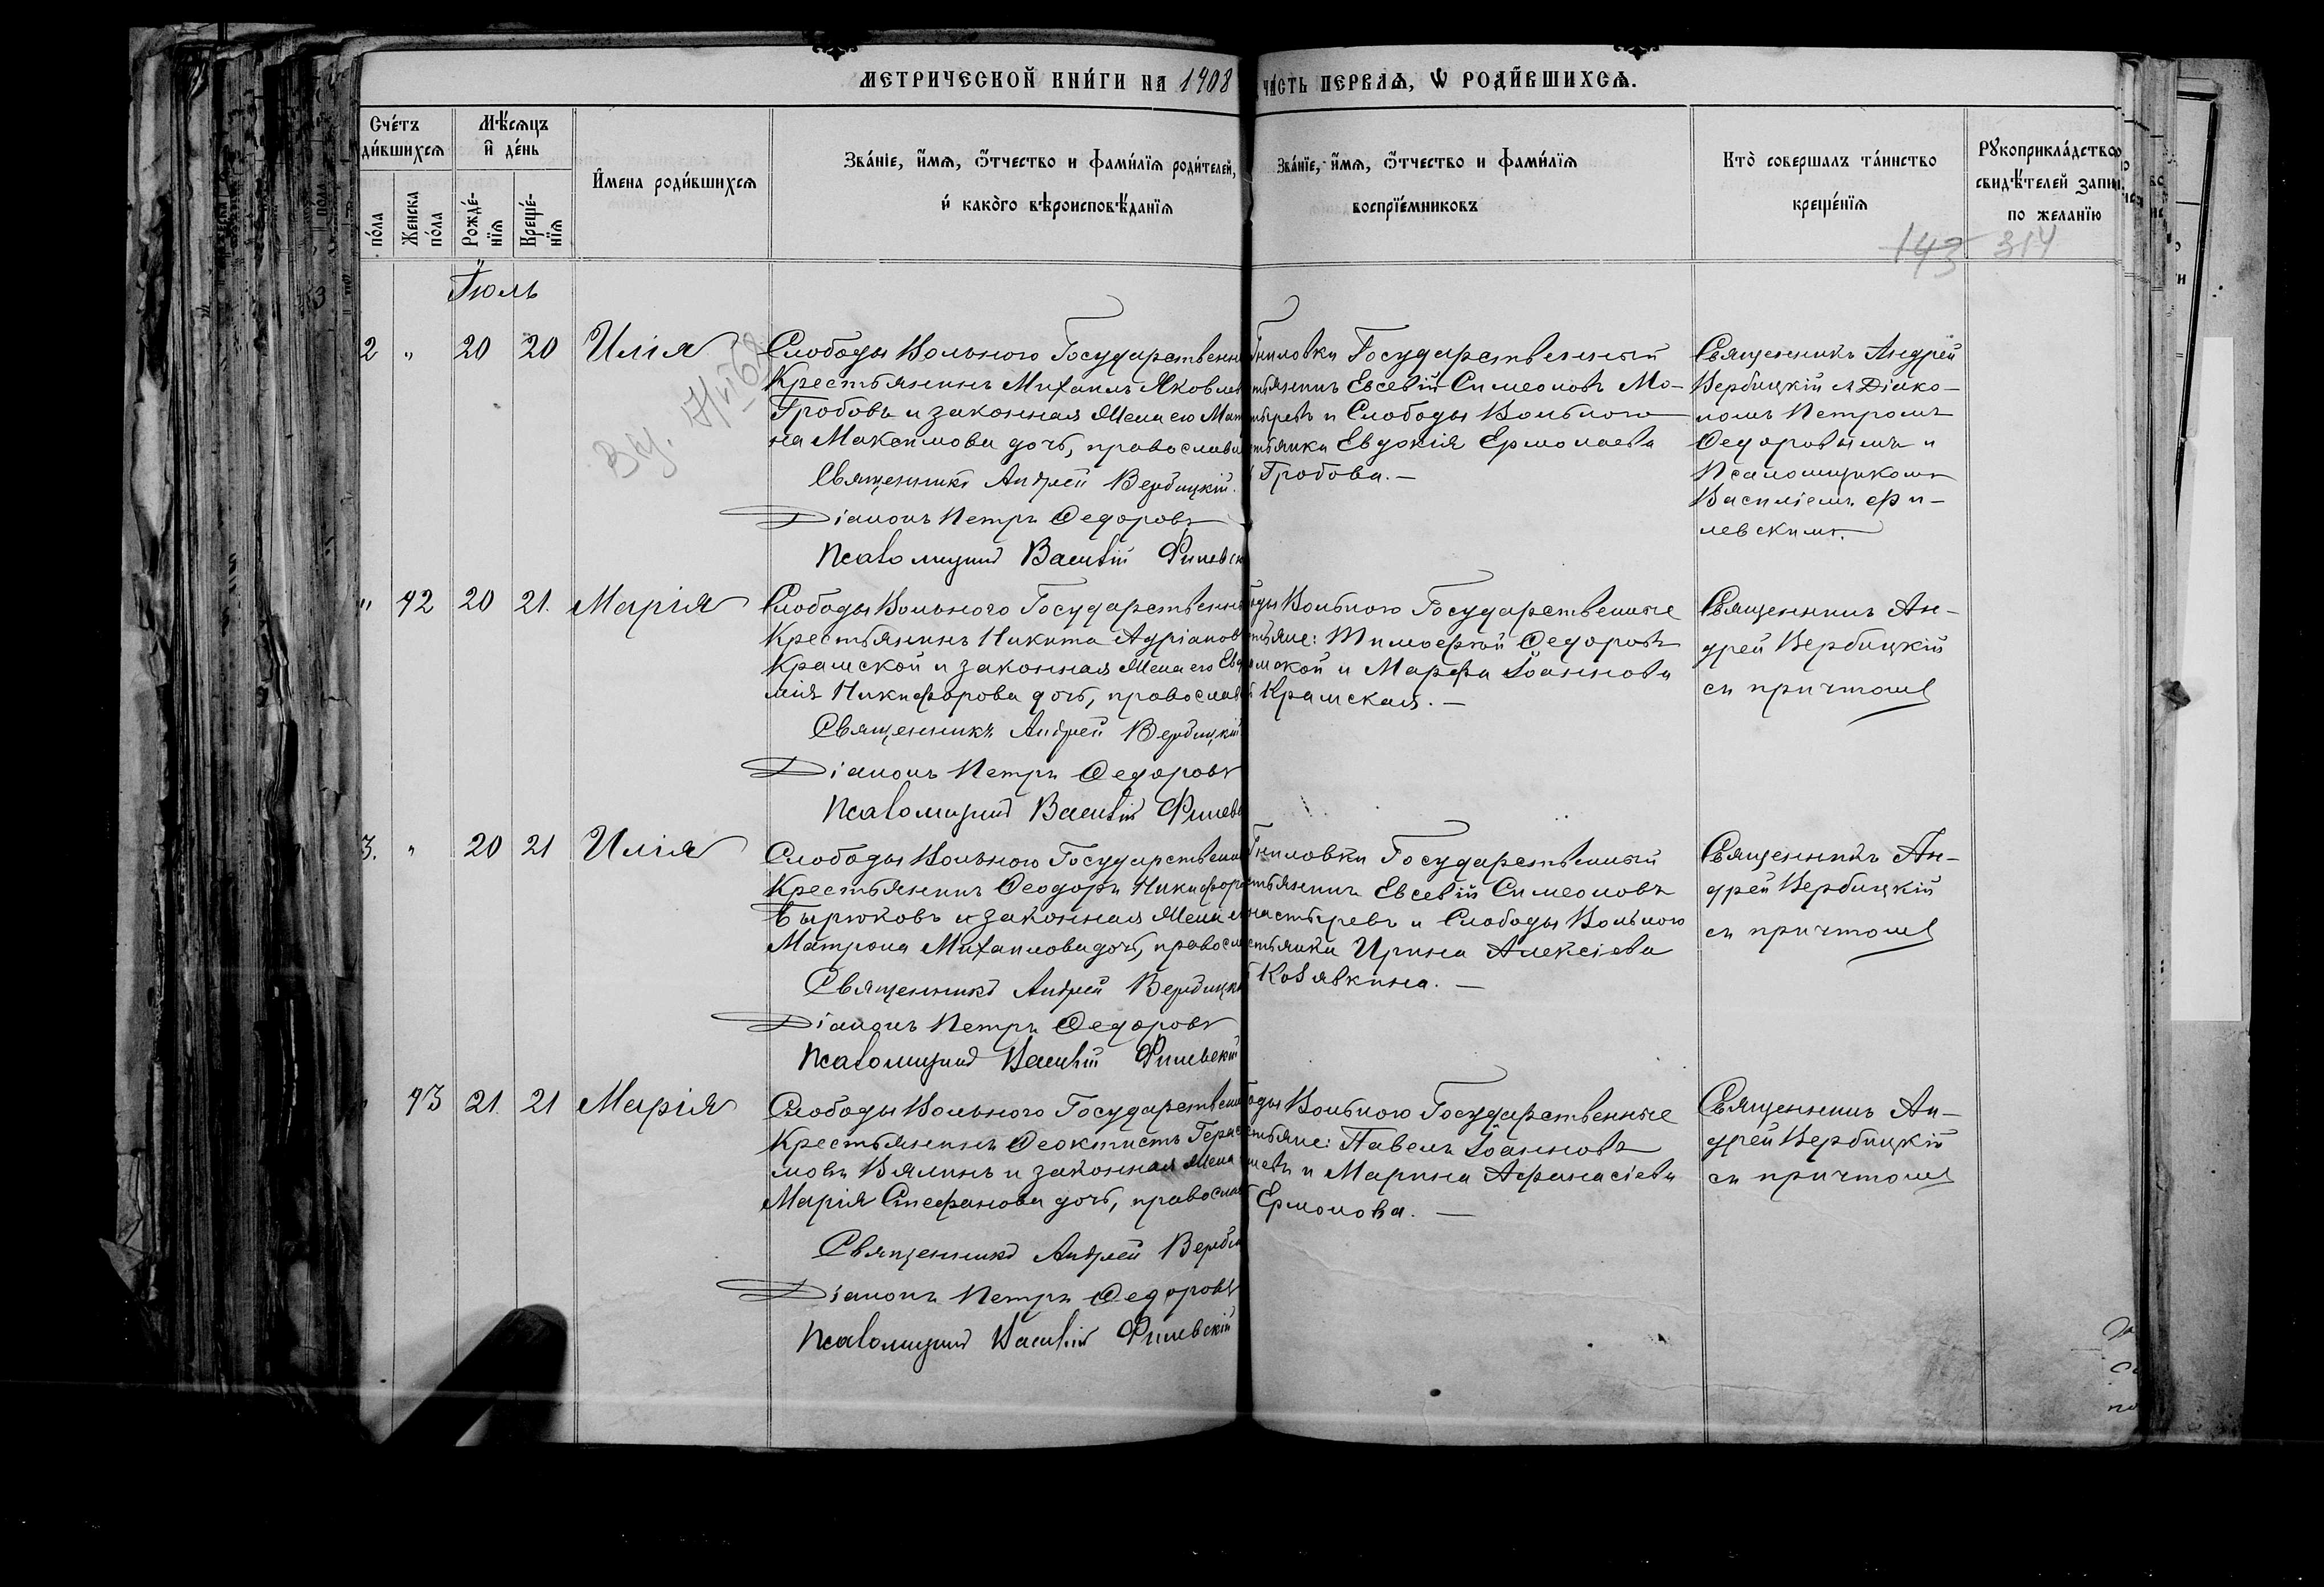 МЕТРИЧЕСКОЙ КНИ́ГИ НА 1908 ЧА́СТЬ ПЕРВАѦ, Ѡ РОДИ́ВШИХСѦ.
Сче́тъ
ди́вшихсѧ
по́ла
Женска по́ла
Мѣ́сѧцъ и҆ де́нь
Рожде́-нїѧ
Креще́-нїѧ
И҆мена роди́вшихсѧ
Зва́нїе, и҆́мѧ, ѻ҆́тчество и фами́лїѧ роди́телей,
и҆ како́гѡ вѣроисповѣ́данїѧ
Зва́нїе, и҆́мѧ, ѻ҆́тчество и фами́лїѧ
воспрїе́мниковъ
Кто̀ совершалъ та́инство
креще́нїѧ
Рꙋкоприкла́дство
свидѣ́телей запи
по жела́нїю
143 314
Іюль
2 " 20 20 Илія
Слободы Вольного Государственн
Крестьянинъ Михаилъ Яковлев
Гробовъ и законная жена его Мат
на Максимова дочь, православн
Священникъ Андрей Вербицкій.
Діаконъ Петръ Ѳедоровъ
Псаломщикъ Василій Филевск
Гниловки Государственный
тьянинъ Евсевій Симеоновъ Мо-
тыревъ и Слободы Вольного
тьянка Евдокія Ермолаева
Гробова. —
Священникъ Андрей
Вербицкій съ Діако-
номъ Петромъ
Ѳедоровымъ и
Псаломщикомъ
Василіемъ Фи-
левскимъ.
" 42 20 21. Марія
Слободы Вольного Государственны
Крестьянинъ Никита Адріанов
Крамской и законная жена его Евд
мія Никифорова дочь, православ
Священникъ Андрей Вербицкій
Діаконъ Петръ Ѳедоровъ
Псаломщикъ Василій Филев
оды Вольного Государственные
тьяне: Тимофей Ѳедоровъ
мской и Марфа Іоаннова
Крамская. —
Священникъ Ан-
дрей Вербицкій
съ причтомъ
3. " 20 21 Илія
Слободы Вольного Государственн
Крестьянинъ Ѳеодоръ Никифоро
Бырюковъ и законная жена е
Матрона Михаилова дочь, правосла
Священникъ Андрей Вербицкі
Діаконъ Петръ Ѳедоровъ
Псаломщикъ Василій Филевскій
Гниловки Государственный
стьянинъ Евсевій Симеоновъ
настыревъ и Слободы Вольного
стьянка Ирина Алексіева
Козявкина. —
Священникъ Ан-
дрей Вербицкій
съ причтомъ
43 21. 21 Марія
Слободы Вольного Государственн
Крестьянинъ Ѳеоктистъ Герас
мовъ Вялинъ и законная жена
Марія Стефанова дочь, православ
Священникъ Андрей Верби
Діаконъ Петръ Ѳедоровъ
Псаломщикъ Василій Филевскій
оды Вольного Государственные
стьяне: Павелъ Іоанновъ
и Марина Афанасіева
Ермолова. —
Священникъ Ан-
дрей Вербицкій
съ причтомъ